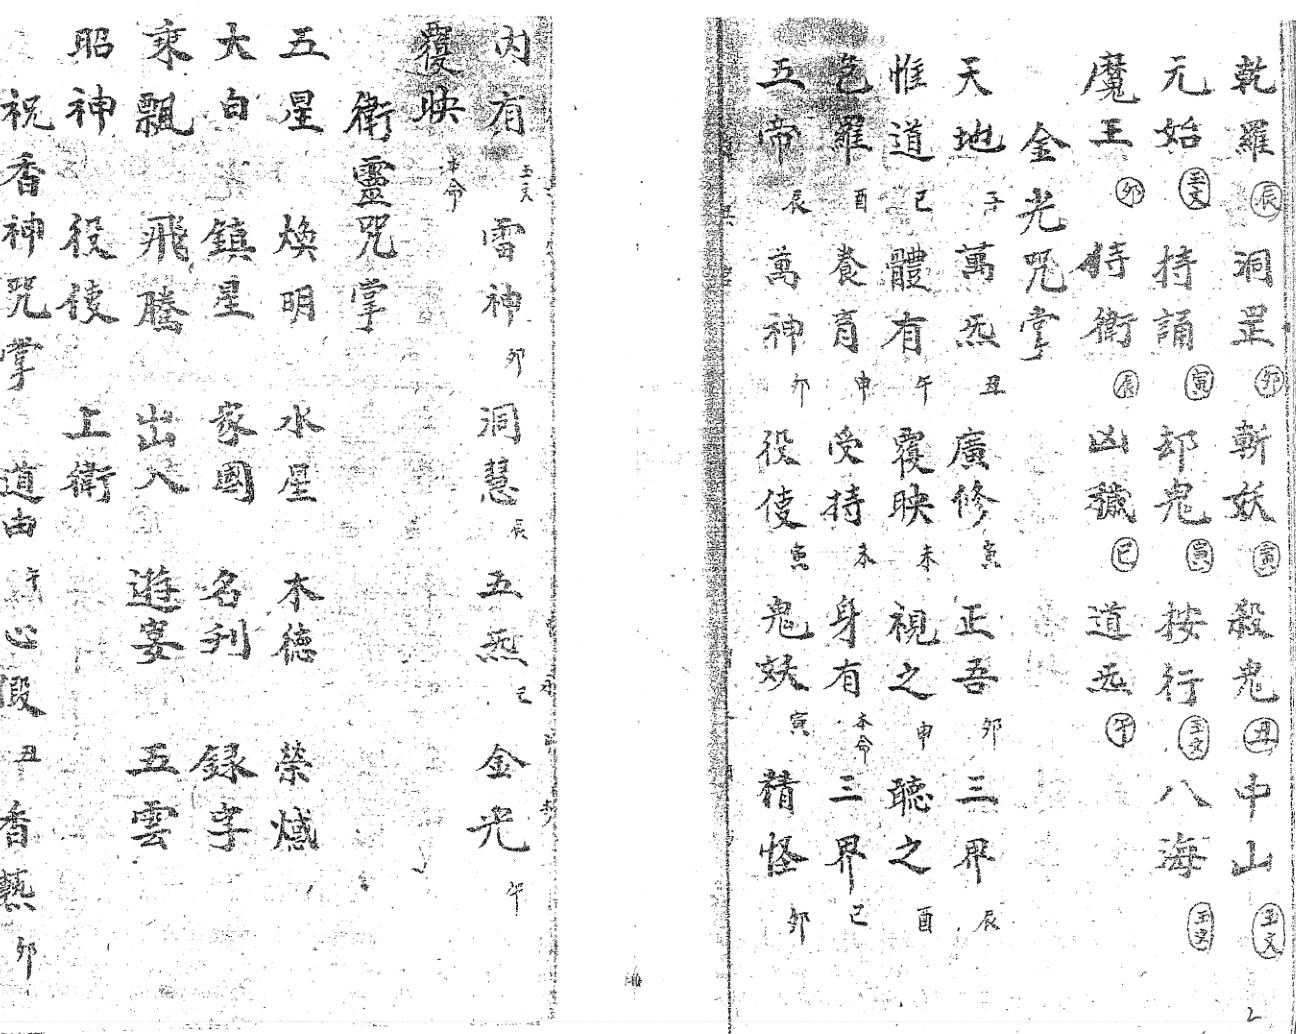 乾羅辰洞罡卯斬妖寅殺鬼丑中山玉文
元始玉文持誦寅却鬼寅按行玉文八海玉文
魔王卯侍衛辰凶穢巳道炁午
金光咒掌
天地子萬炁丑廣修寅正吾卯三界辰
惟道巳體有午覆映未視之申聽之酉
包羅酉養育申受持本身有本命三界己
五帝辰萬神卯役使寅鬼妖寅精怪卯
2
内有玉文雷神卯洞慧辰五炁己金光午
覆映本命
衛靈咒掌
五星煥明水星木德熒惑
太白鎮星家國名利録字
乘飄飛騰出入遊宴五雲
昭神役使上衛
祝香神咒掌
道由午心假丑香爇卯